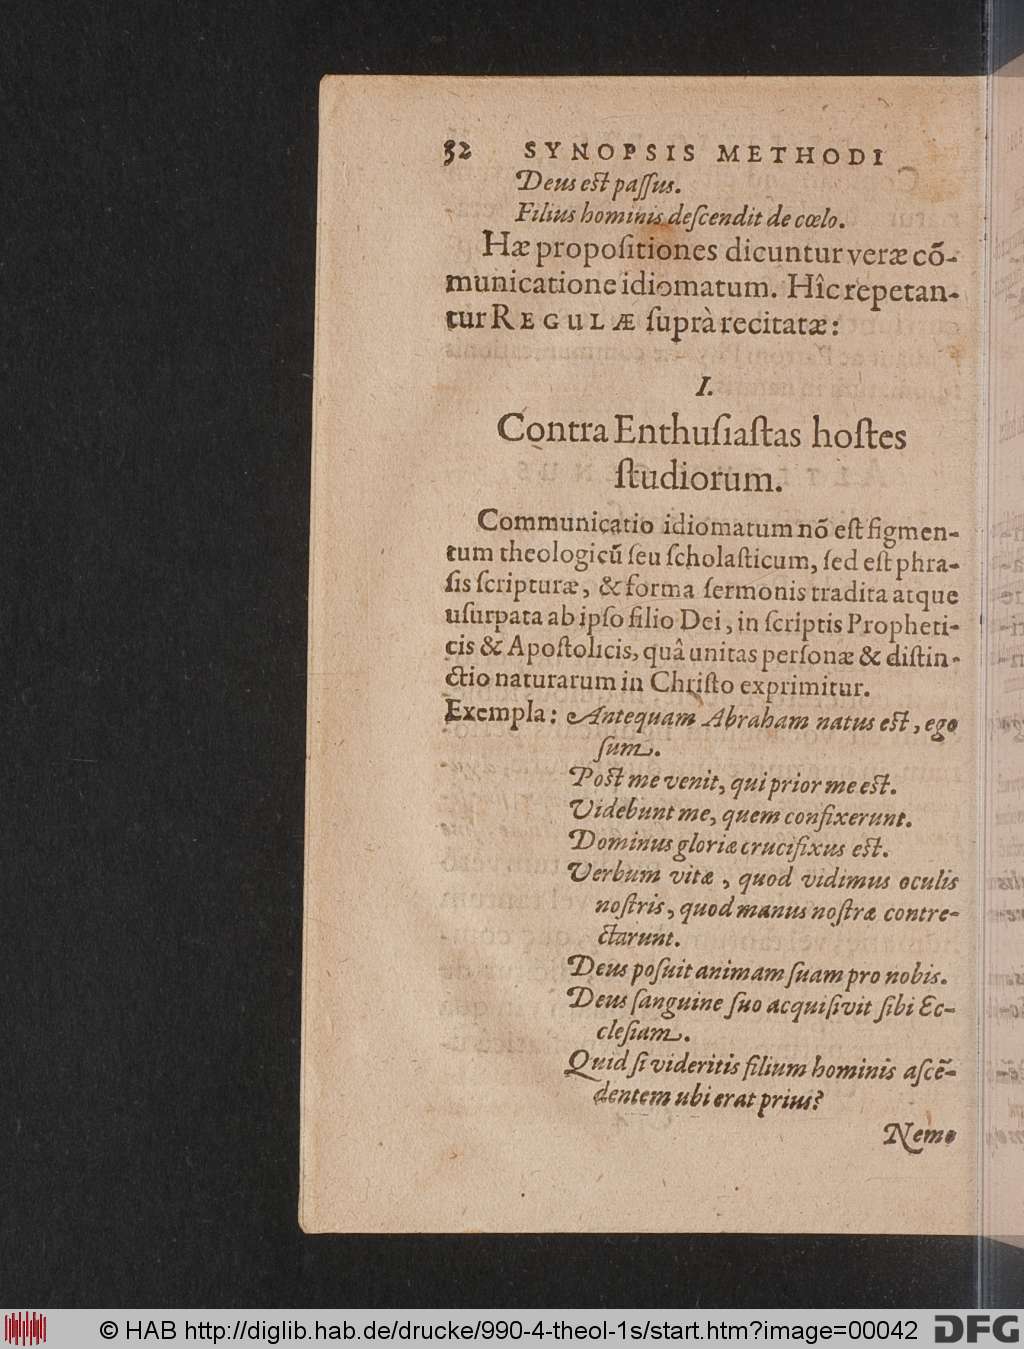 32 SYNOPSIS METHODI
Deus est paſſus.
Filius hominis deſcendit de cœlo.
Hæ propoſitiones dicuntur veræ cō-
municatione idiomatum. Hîc repetan-
tur REGULÆ ſuprà recitatæ:
I.
Contra Enthuſiaſtas hoſtes
ſtudiorum.
Communicatio idiomatum nō eſt figmen-
tum theologicū ſeu ſcholaſticum, ſed eſt phra-
ſis ſcripturæ, & forma ſermonis tradita atque
uſurpata ab ipſo filio Dei, in ſcriptis Propheti-
cis & Apoſtolicis, quâ unitas perſonæ & diſtin-
ctio naturarum in Chriſto exprimitur.
Exempla: Antequam Abraham natus eſt, ego
ſum.
Poſt me venit, qui prior me eſt.
Videbunt me, quem confixerunt.
Dominus gloriæ crucifixus eſt.
Verbum vitæ, quod vidimus oculis
noſtris, quod manus noſtræ contre-
ctarunt.
Deus poſuit animam ſuam pro nobis.
Deus ſanguine ſuo acquiſivit ſibi Ec-
cleſiam.
Quid ſi videritis filium hominis aſcē-
dentem ubi erat prius?
Nemo
© HAB http://diglib.hab.de/drucke/990-4-theol-1s/start.htm?image=00042
DFG